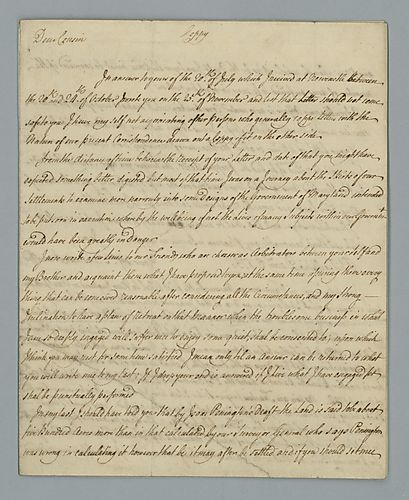 Dear Cousin Coppy
In answer to yours of the 20th of July which I received at Newcastle between
the 20th and 24th of October I wrote you on the 25th of November and lest that Letter should not come
safe to you I have my self not acquainting other persons who generally copy Letters with the
Nature of our present Correspondence drawn out a Coppy of it on the other side
From the distance of time between the receipt of your Letter and date of that you might have
expected something better digested but most of that time I was on a Journey about the Skirts of our
Settlements to examine more narrowly into some Designs of the Government of Maryland intended
to be put soon in execution whereby the well being if not the Lives of many Subjects within our Government
would have been greatly in danger
I now write also to our Friends who are chosen as Arbitrators between yourself and
my Brother and acquaint them what I have proposed to you at the same time offering them every
thing that can be conceived reasonable after considering all the Circumstances, and my strong
Inclination to have a plan of retreat on that Manor when the troublesome business in which
I am so deeply engaged will suffer me to enjoy some quiet, shall be consented to, upon which
I think you may rest for some time satisfied I mean only til an answer can be returned to what
you will write me to my last; If I stay your and is answered if I live what I have engaged for
shall be punctually performed
In my last I should have told you that by Isaac Penington's Draft the Land is said to be about
five hundred Acres more than is that calculated by our Surveyor General who says Penington
was wrong in calculating it however that be it may after be settled and if you should set me